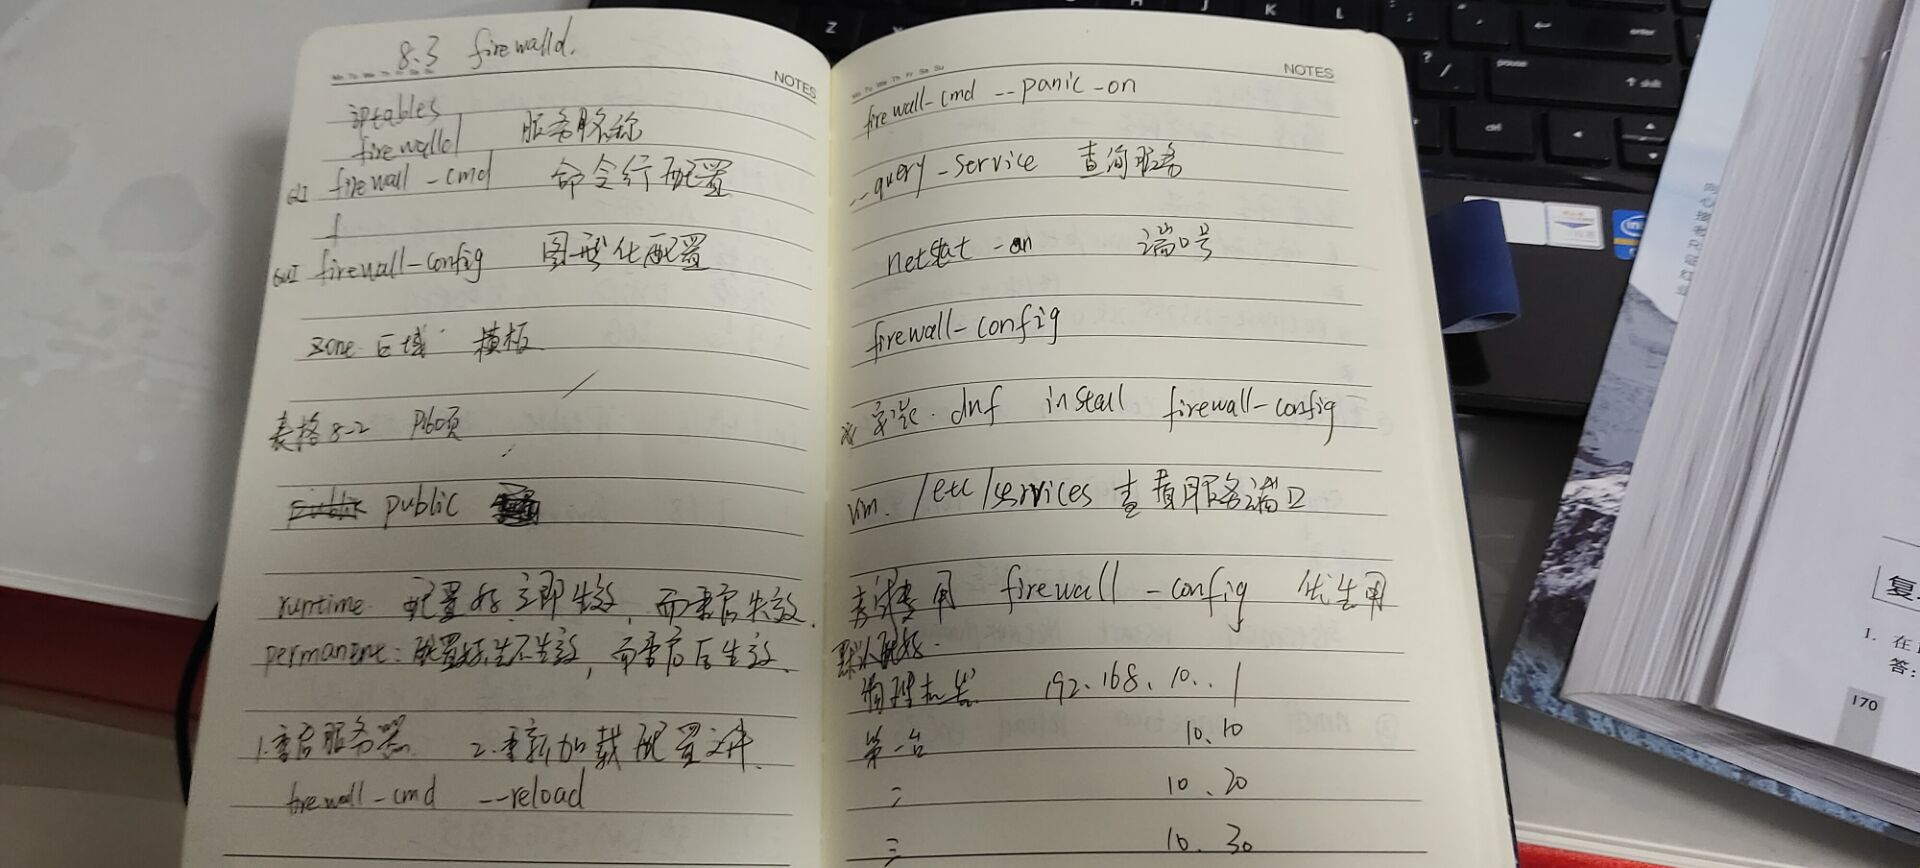 8.3 firewalld.
NOTES
iptables
firewalld 服务名称
CLI firewall-cmd 命令行配置
GUI firewall-config 图形化配置
zone 区域 模板
表格8-2 P160页
public
runtime 配置好立即生效,而重启失效.
permanent:配置好先不生效,而重启后生效.
1.重启服务器 2.重新加载配置文件.
firewall-cmd --reload
NOTES
firewall-cmd --panic-on
--query-service 查询服务
netstat -an 端口号
firewall-config
安装. dnf install firewall-config
vim. /etc/services 查看服务端口
考试专用 firewall-config 优先用
默认配好.
物理机 192.168.10..1
第一台 10.10
二 10.20
三 10.30
170
1. 在
答: